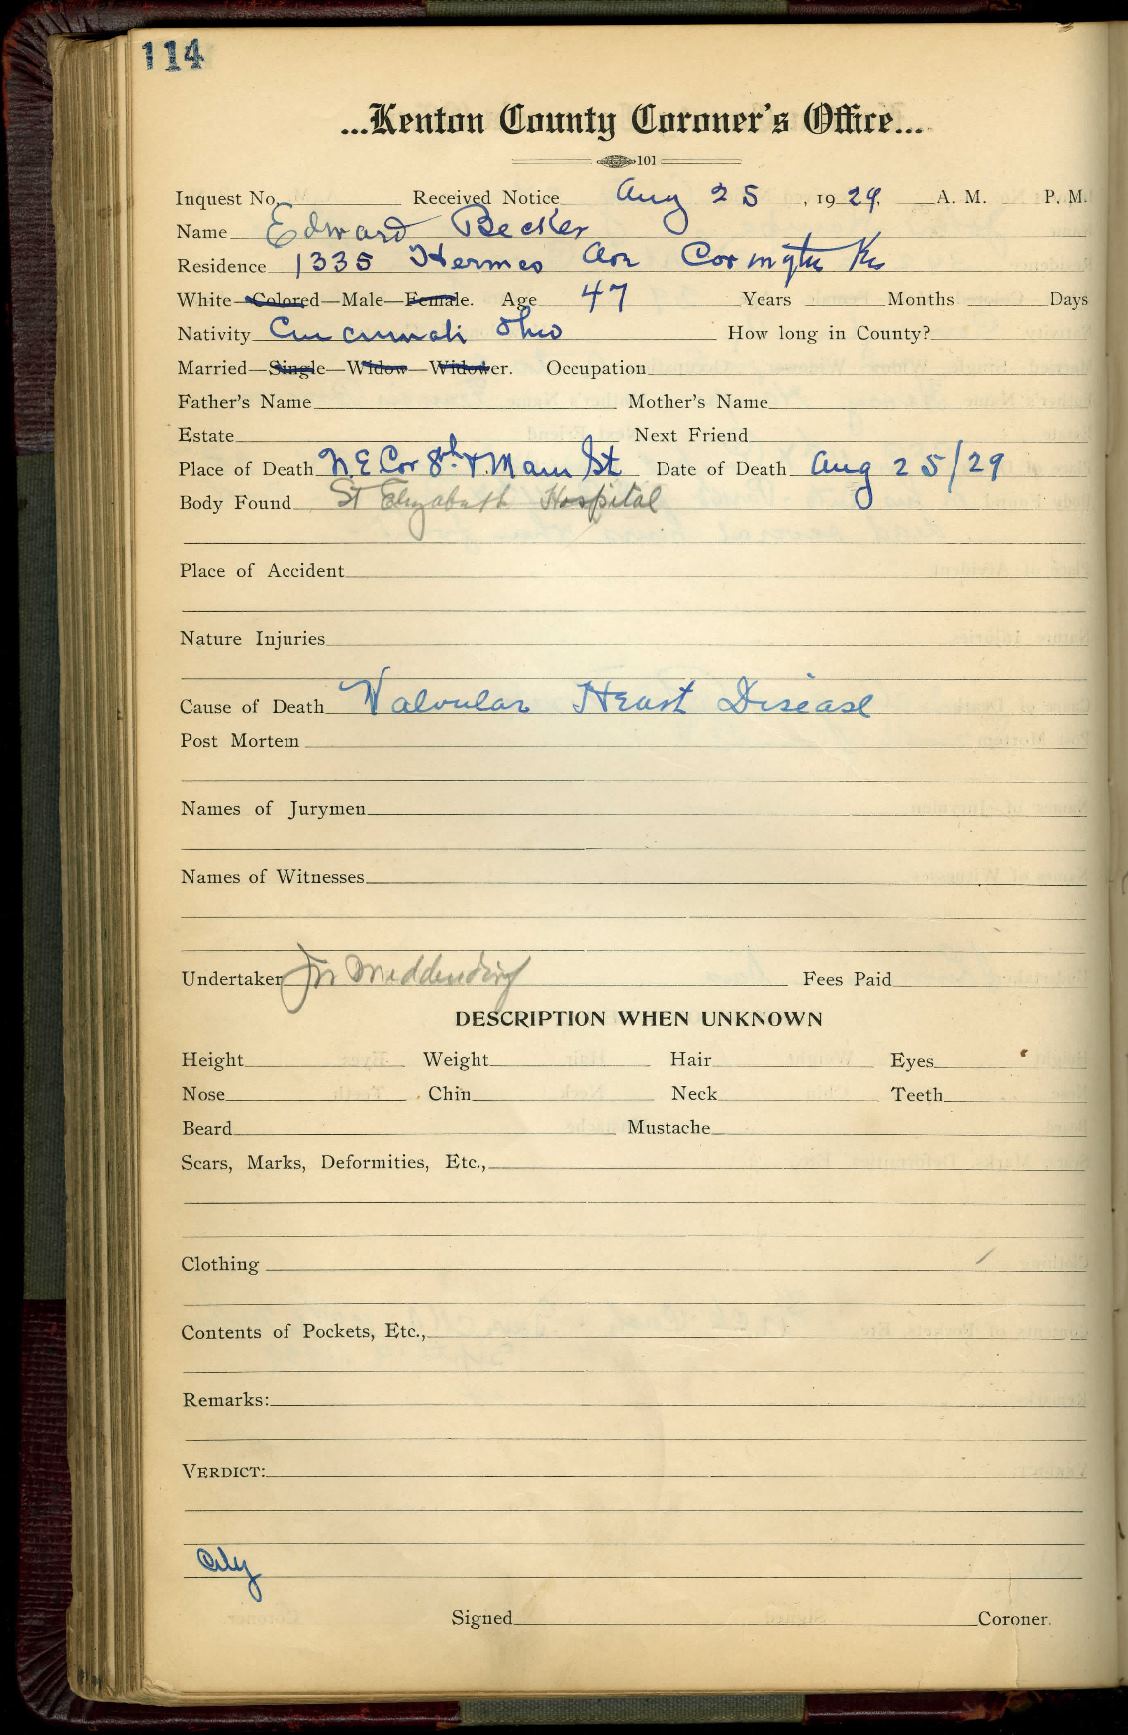 114
...Kenton County Coroner's Office...
101
Inquest No. Received Notice Aug 25, 1929. A. M. P. M.
Name Edward Becker
Residence 1335 Hermes Ave Covington Ky
White—Colored—Male—Female. Age 47 Years Months Days
Nativity Cincinnati Ohio How long in County?
Married—Single—Widow—Widower. Occupation
Father's Name Mother's Name
Estate Next Friend
Place of Death N.E Cor 8th & Main St Date of Death Aug 25/29
Body Found St Elizabeth Hospital
Place of Accident
Nature Injuries
Cause of Death Valvular Heart Disease
Post Mortem
Names of Jurymen
Names of Witnesses
Undertaker Jn Middendorf Fees Paid
DESCRIPTION WHEN UNKNOWN
Height Weight Hair Eyes
Nose Chin Neck Teeth
Beard Mustache
Scars, Marks, Deformities, Etc.,
Clothing
Contents of Pockets, Etc.,
Remarks:
VERDICT:
City
Signed Coroner.